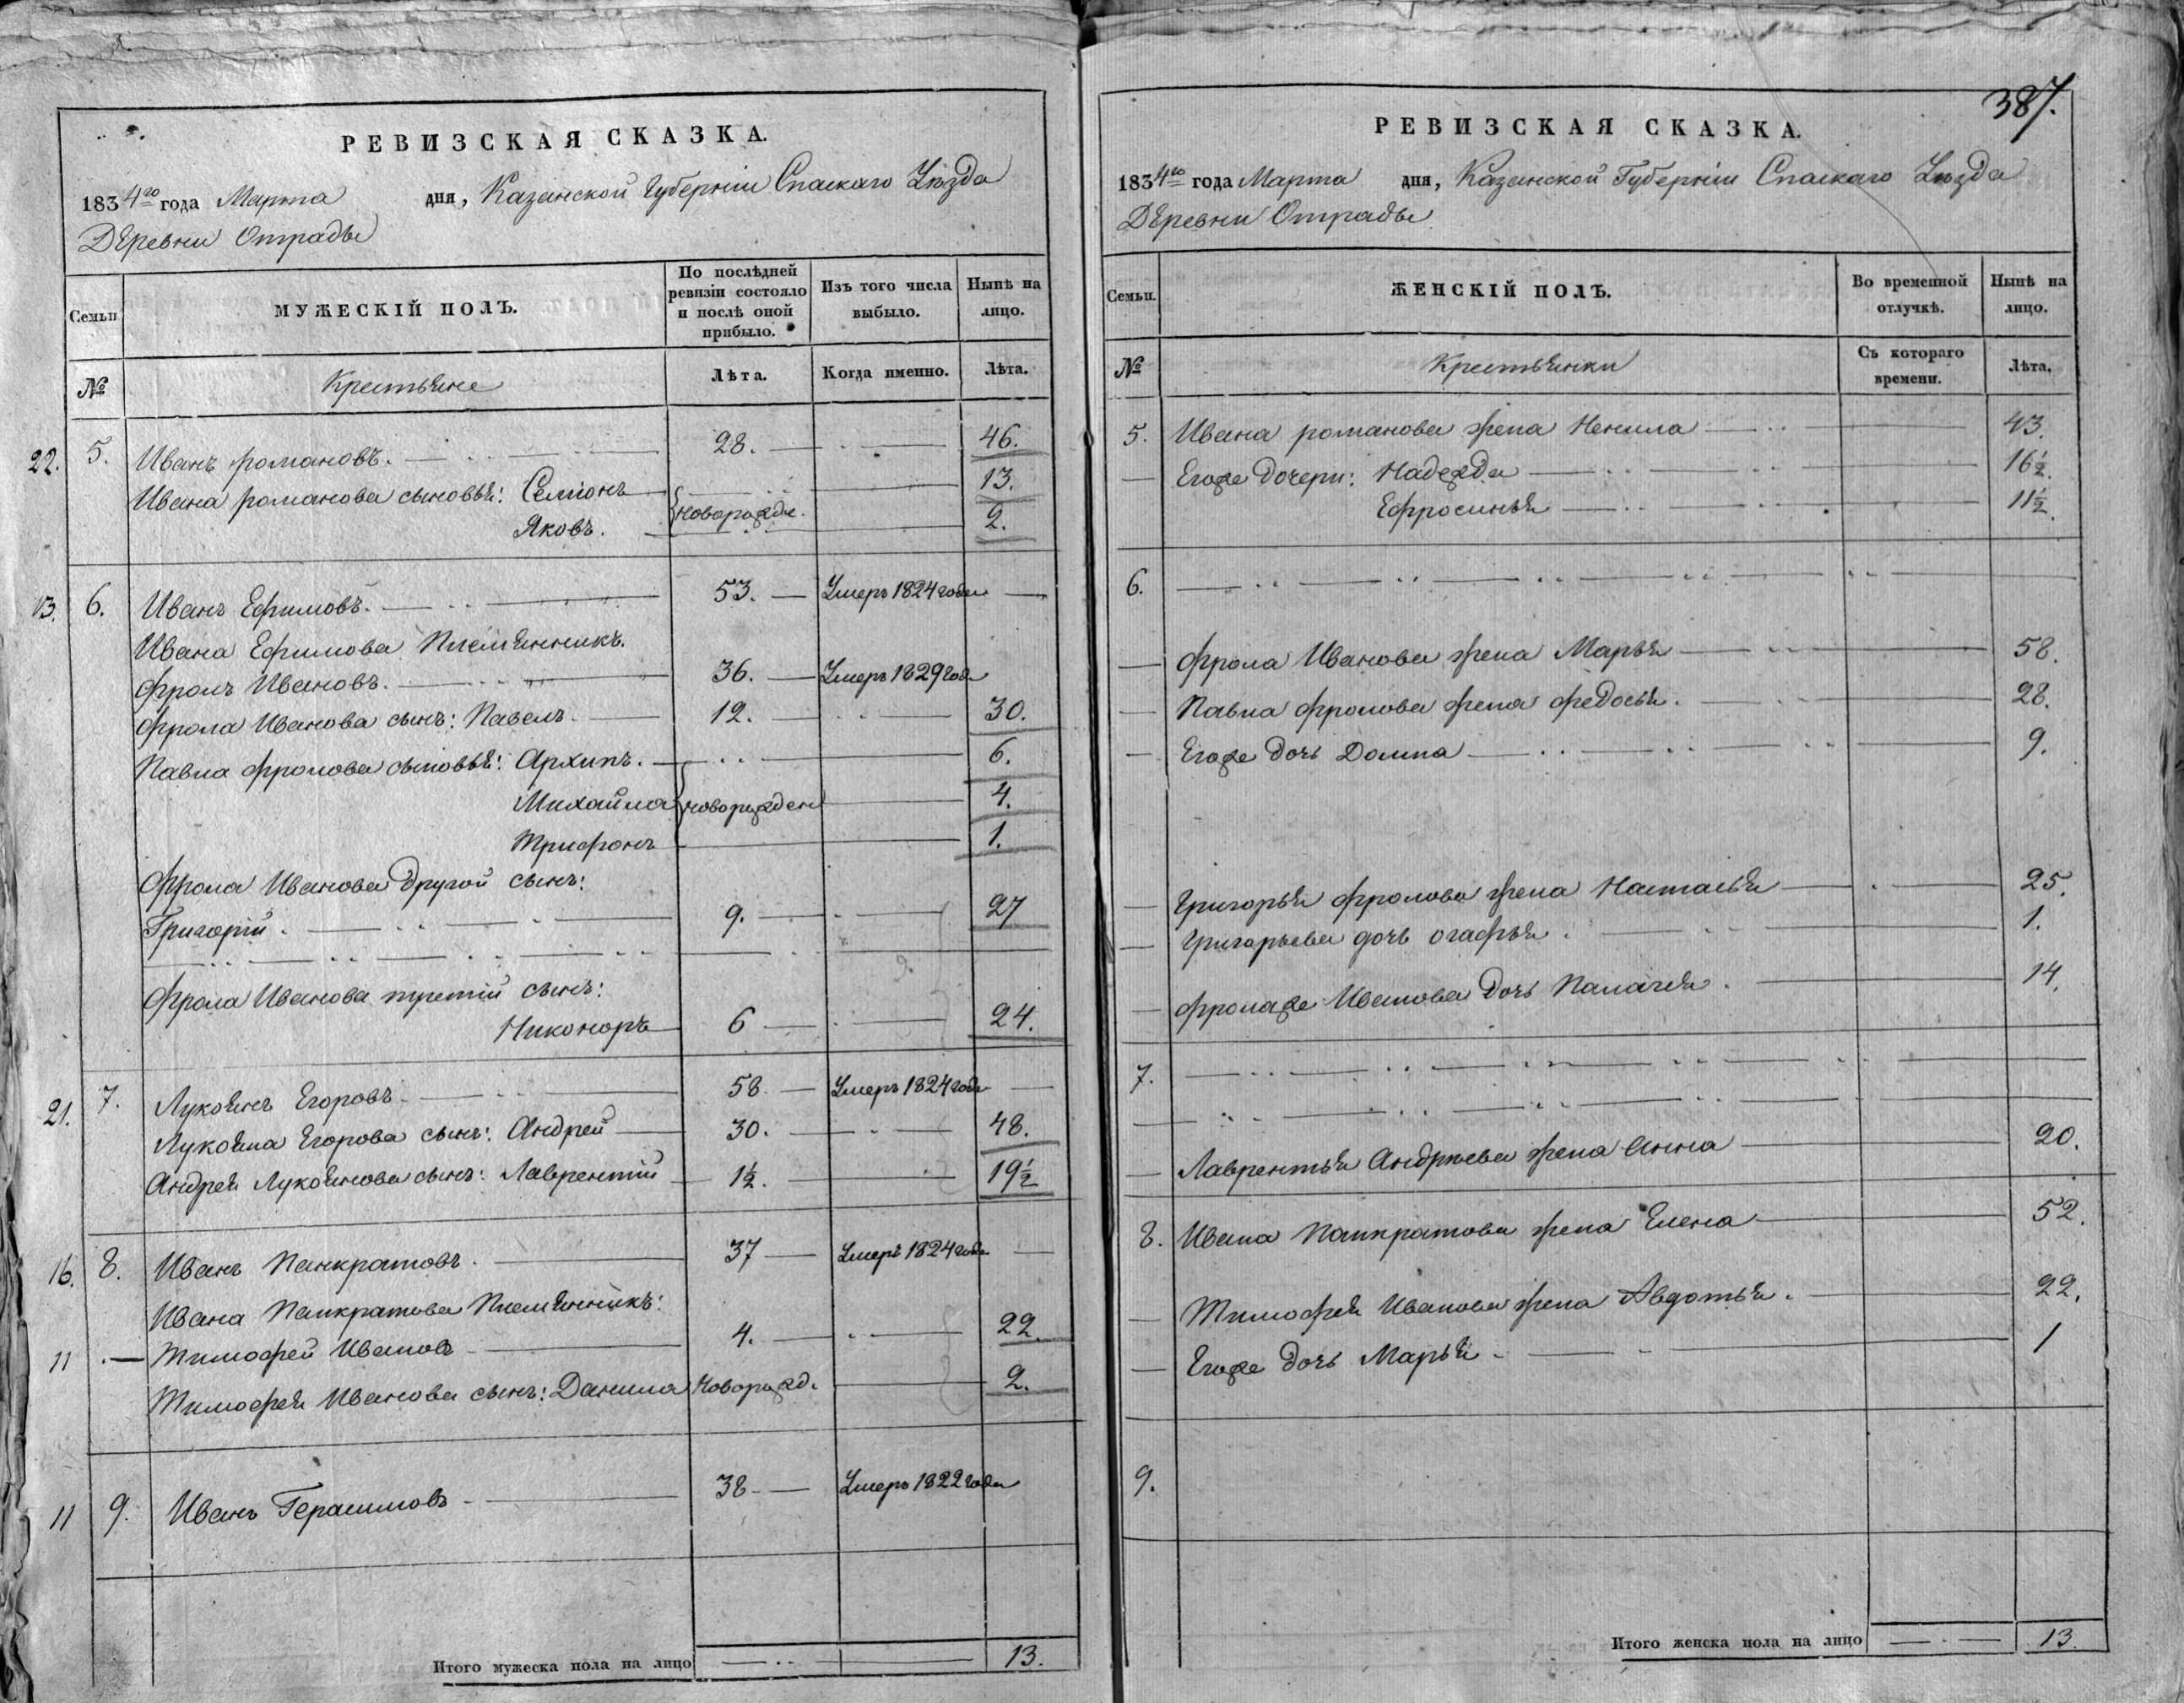 РЕВИЗСКАЯ СКАЗКА.
1834го года Марта дня, Казанской Губернiи Спаскаго Уѣзда
Деревни Отрады
Семьи. МУЖЕСКIЙ ПОЛЪ. По послѣдней ревизiи состояло и послѣ оной прибыло. Изъ того числа выбыло. Нынѣ на лицо.
№ Крестьяне Лѣта. Когда именно. Лѣта.
22. 5. Иванъ романовъ. 28. 46.
Ивана романова сыновья: Семiонъ новорожде. 13.
Яковъ. 2.
13. 6. Иванъ Ефимовъ. 53. Умеръ 1824 года
Ивана Ефимова Племянникъ.
Фролъ Ивановъ. 36. Умеръ 1829 года
Фрола Иванова сынъ: Павелъ. 12. 30.
Павла Фролова сыновья: Архипъ. 6.
Михайла новорожден 4.
Трифонъ 1.
Фрола Иванова другой сынъ:
Григорiй. 9. 27
Фрола Иванова третiй сынъ:
Никоноръ 6 24.
21. 7. Лукоянъ Егоровъ. 58. Умеръ 1824 года
Лукояна Егорова сынъ: Андрей 30. 48.
Андрея Лукоянова сынъ: Лаврентiй 1½. 19½
16. 8. Иванъ Панкратовъ. 37 Умеръ 1824 года
Ивана Панкратова Племянникъ:
11 Тимофей Ивановъ 4. 22.
Тимофея Иванова сынъ: Данила Новорожд. 2.
11 9. Иванъ Герасимовъ 38 Умеръ 1822 года
Итого мужеска пола на лицо 13.
387.
РЕВИЗСКАЯ СКАЗКА.
1834го года Марта дня, Казанской Губернiи Спаскаго Уѣзда
Деревни Отрады
Семьи. ЖЕНСКIЙ ПОЛЪ. Во временной отлучкѣ. Нынѣ на лицо.
№ Крестьянки Съ котораго времени. Лѣта.
5. Ивана романова жена Ненила 43.
Егоже дочери: Надежда 16½.
Ефросинья 11½.
6.
Фрола Иванова жена Марья 58.
Павла Фролова жена Федосья. 28.
Егоже дочь Домна 9.
Григорья Фролова жена Настасья 25.
Григорьева дочь огафья. 1.
Фролаже Иванова дочь Палагея. 14.
7.
Лаврентья Андреева жена Анна 20.
8. Ивана Панкратова жена Елена 52.
Тимофея Иванова жена Авдотья. 22.
Егоже дочь Марья 1
9.
Итого женска пола на лицо 13.